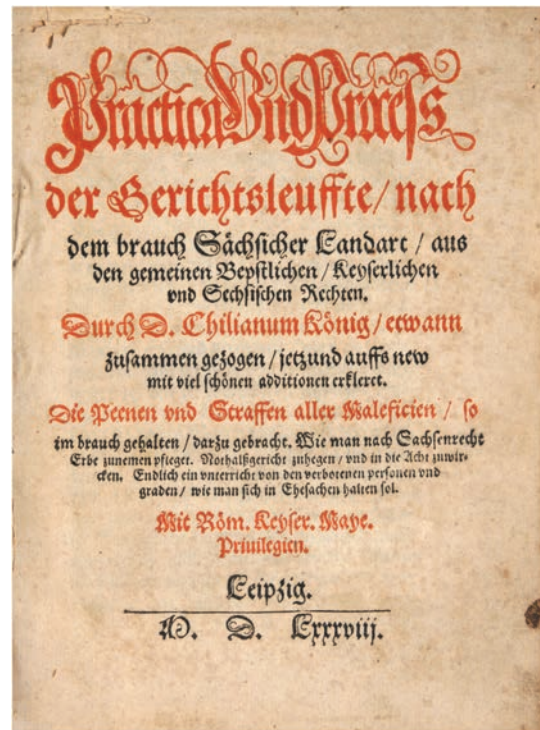 Practica Vnd Process
der Gerichtsleuffte / nach
dem brauch Sächsicher Landart / aus
den gemeinen Bepstlichen / Keyserlichen
vnd Sechsischen Rechten.
Durch D. Chilianum König / etwann
zusammen gezogen / jetzund auffs new
mit viel schönen additionen erkleret.
Die Peenen vnd Straffen aller Maleficien / so
im brauch gehalten / darzu gebracht. Wie man nach Sachsenrecht
Erbe zunemen pfleget. Nothalßgericht zuhegen / vnd in die Acht zuwir-
cken. Endlich ein vnterricht von den verbotenen personen vnd
graden / wie man sich in Ehesachen halten sol.
Mit Röm. Keyser. Maye.
Priuilegien.
Leipzig.
M. D. Lxxxviij.